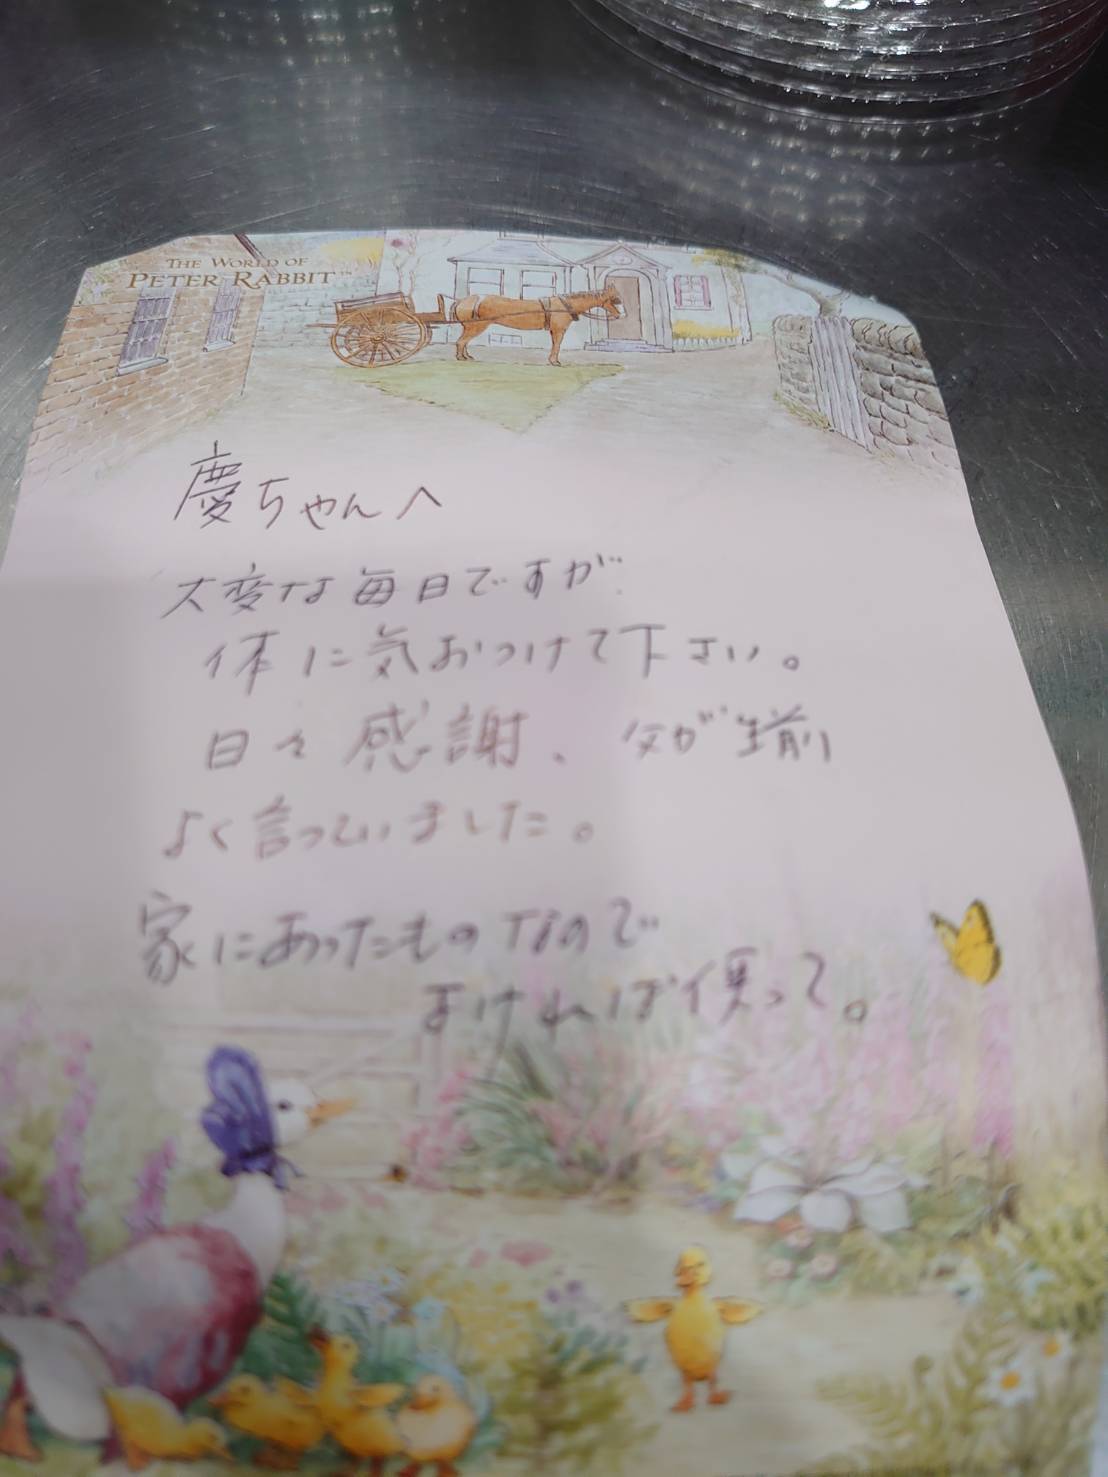 THE WORLD OF
PETER RABBIT™
慶ちゃんへ
大変な毎日ですが
体に気おつけて下さい。
日々感謝、父が生前
よく言っていました。
家にあったものなので
よければ使って。